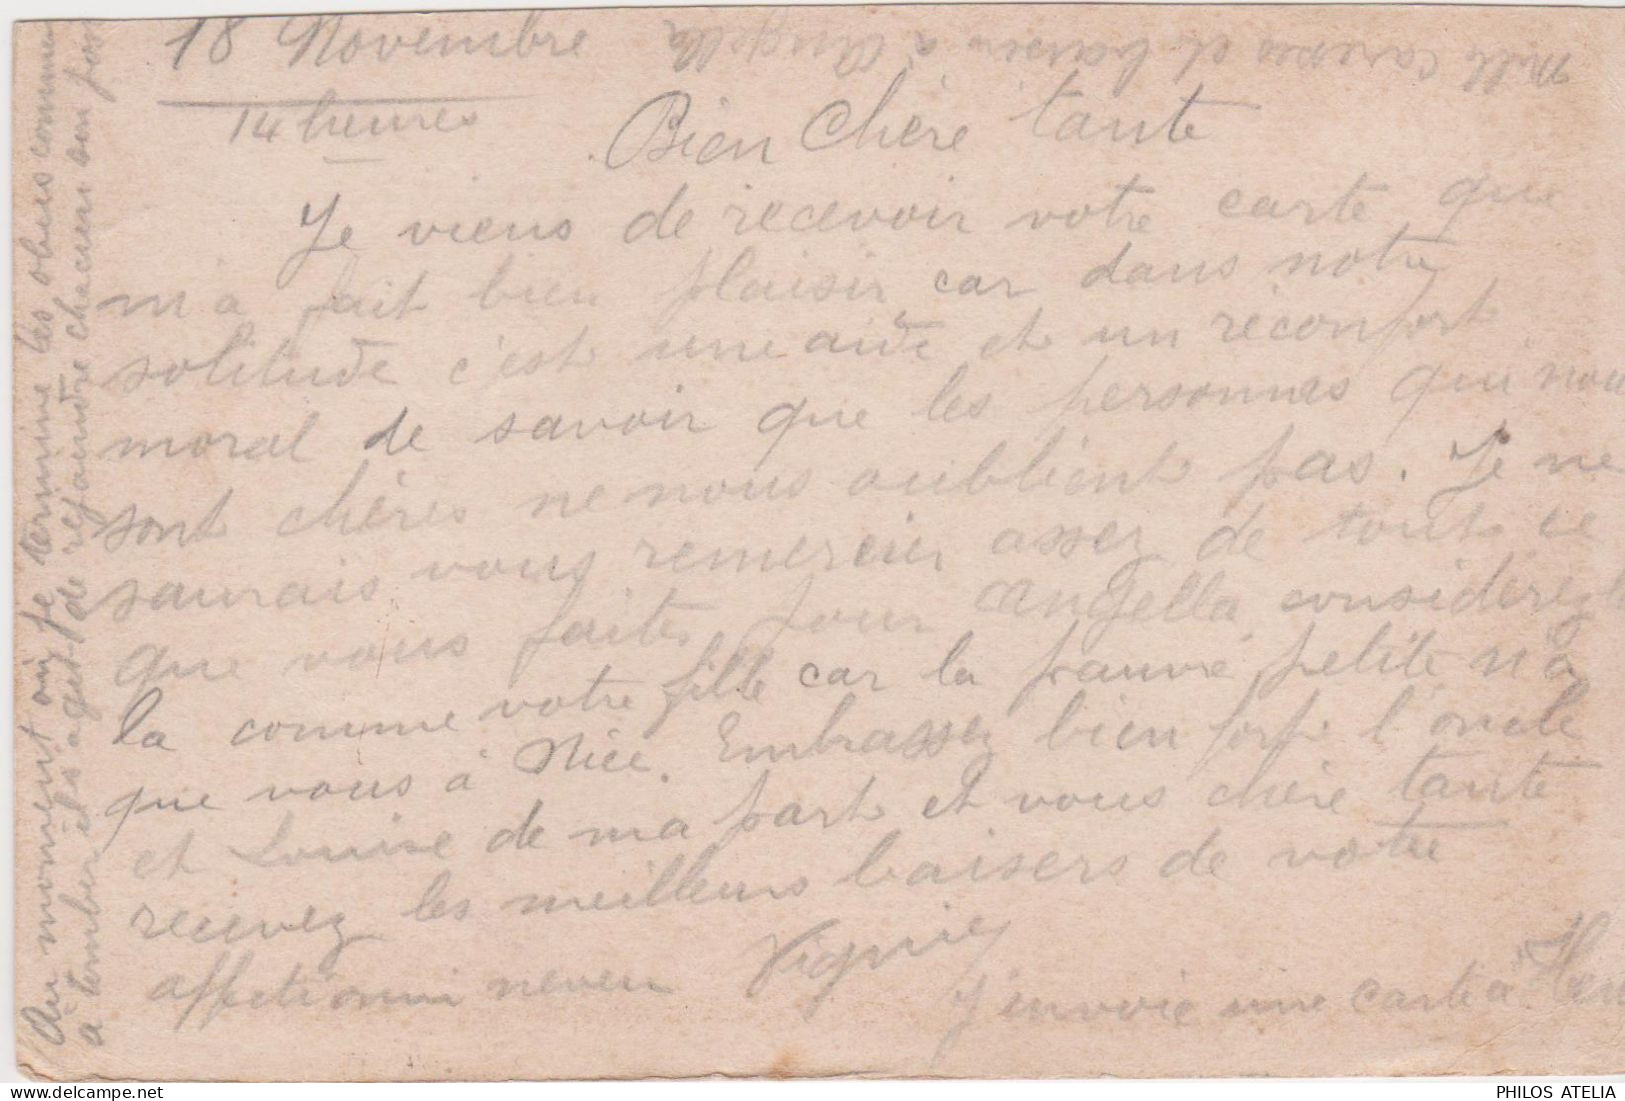 18 Novembre
14 heures
Bien Chère tante
Je viens de recevoir votre carte que
m'a fait bien plaisir car dans notre
solitude c'est une aide et un réconfort
moral de savoir que les personnes qui nou
sont chères ne nous oublient pas. Je ne
saurais vous remercier assez de tout ce
que vous faites pour Angella considerez
la comme votre fille car la pauvre petite n'a
que vous à Nice. Embrassez bien fort l'oncle
et Louise de ma part et vous chère tante
recevez les meilleurs baisers de votre
affectionné neveu Vignie
J'envoie une carte à Hen
Au moment où je termine les obus commen
à tomber il s'agit de rejoindre chacun son pos
Mille caresses et baisers à Angella
PHILOS ATELIA